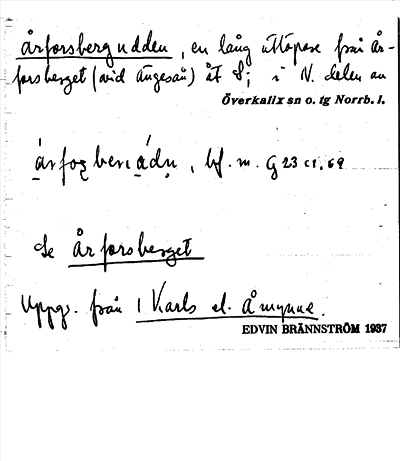 årforsbergudden, en lång utlöpare från År-
forsberget (vid Ängesån) åt S; i N. delen av
Överkalix sn o. tg Norrb. l.
bf. m. G 23 c1. 69
Se årforsberget
Uppg. från 1 Karls el. Åmynne.
EDVIN BRÄNNSTRÖM 1937